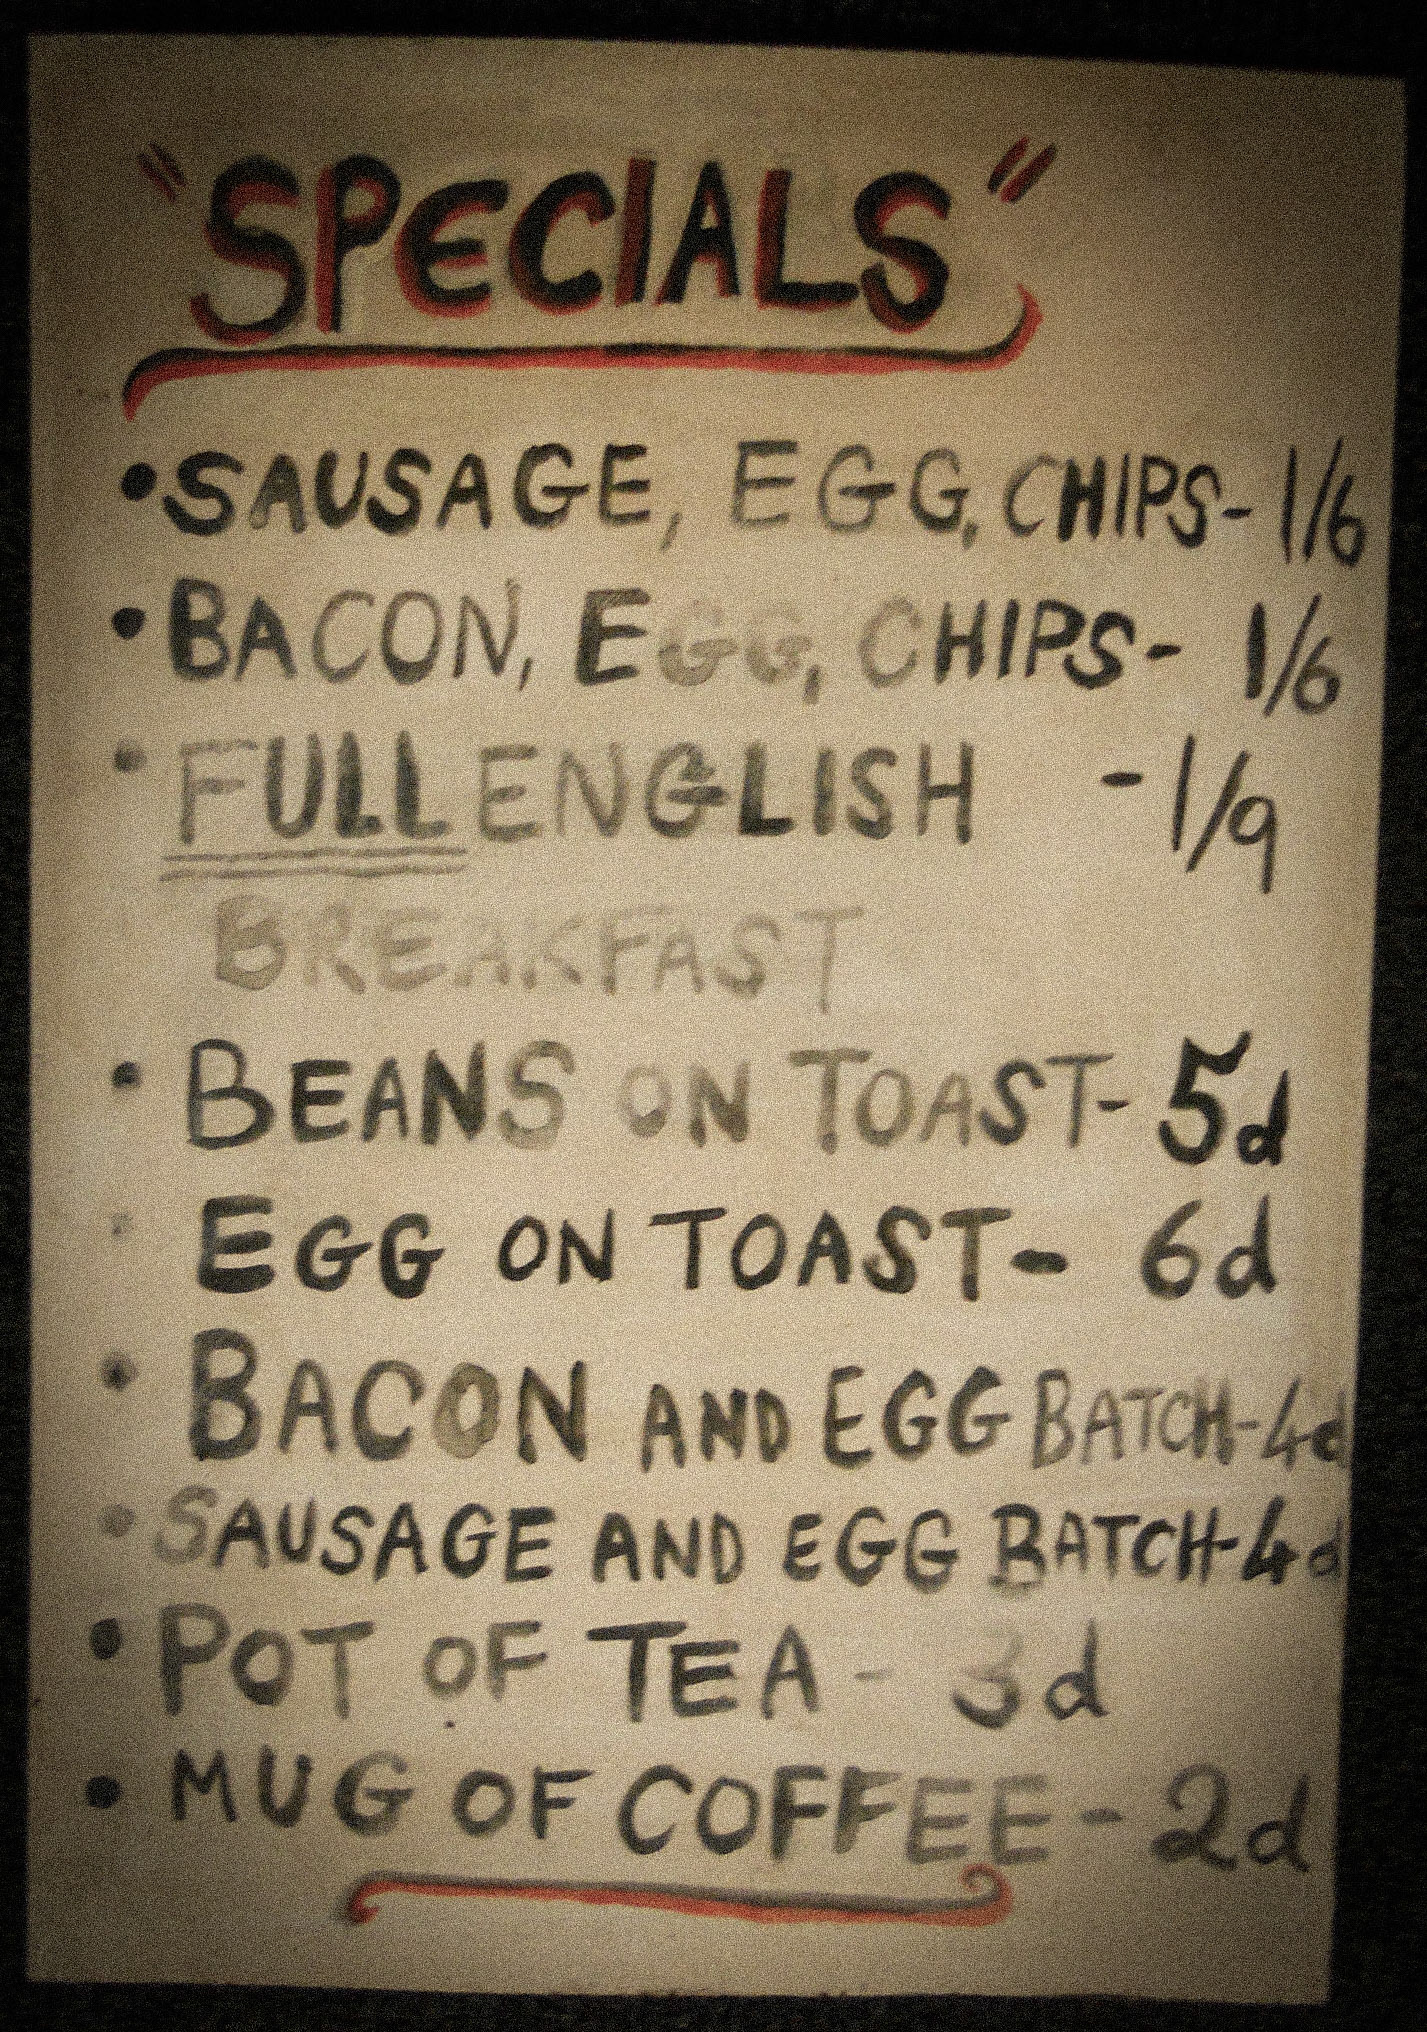 "SPECIALS"
•SAUSAGE, EGG, CHIPS- 1/6
•BACON, EGG, CHIPS- 1/6
•FULL ENGLISH -1/9
BREAKFAST
•BEANS ON TOAST- 5d
•EGG ON TOAST- 6d
•BACON AND EGG BATCH-4d
•SAUSAGE AND EGG BATCH-4d
•POT OF TEA- 3d
•MUG OF COFFEE- 2d